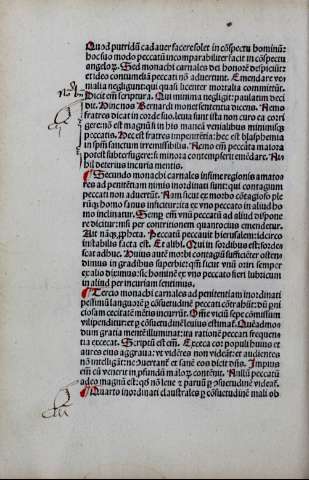 Quod putridū cadauer facere solet in cōspectu hominū:
hoc suo modo peccatū incomparabiliter facit in cōspectu
angeloꝝ. Sed monachi carnales dei honorē despiciūt
et ideo contumeliā peccati nō aduertunt. Emendare ve
nialia negligunt: qui quasi licenter mortalia committūt.
Dicit em̄ scriptura. Qui minima negligit: paulatim deci
dit. Hinc nos Bernardi monet sententia dicens. Nemo
fratres dicat in corde suo. leuia sunt ista non curo ea corri
gere: nō est magnū si in his maneā venialibus minimisqꝫ
peccatis. Hec est fratres impenitētia: hec est blasphemia
in spm̄ sanctum irremissibilis. Nemo em̄ peccāta maiora
poterit subterfugere: si minora contempserit emēdare. Ni
hil deterius incuria mentis.
Secundo monachi carnales in sime regionis amato
res ad penitētiam nimis inordinati sunt: qui contagium
peccati non aduertūt. Nam sicut ex morbo cōtagioso ple
rūqꝫ homo sanus inficitur: ita ex vno peccato in aliud ho
mo inclinatur. Semp em̄ vnū peccatū ad aliud dispone
re dicitur: nisi per contritionem quantocius emendetur.
Ait nāqꝫ ꝓpheta. Peccatū peccauit hierusalē: idcirco
instabilis facta est. Et alibi. Qui in sordibus est: sordes
scat adhuc. Huius autē morbi contagiū sufficiēter osten
dimus in gradibus superbie: qm̄ sicut vnū oriri semper
ex alio diximus: sic hominē ex vno peccato fieri lubricum
in aliud per incuriam sentimus.
Tercio monachi carnales ad penitentiam inordinati
pessimū languorē ꝙ cōsuetudinē peccati cōtrahūt: dū pni
ciosam excitatē mētis incurrūt. Om̄e viciū sepe cōmissum
vilipenditur: et ꝙ cōsuetudinē leuius estimat. Quēadmo
dum gratia mentē illuminat: ita ratione peccati frequen
tia excecat. Scriptū est em̄. Exceca cor populi huius et
aures eius aggraua: vt vidēres non videāt: et audientes
nō intelligāt: ne ɔuertant̄ et sanē eos dicit dn̄s. Impius
em̄ cū venerit in ꝓfundū maloꝝ contēnit. Nullū peccatū
adeo magnū est: qd̄ nō leue et paruū ꝙ ɔsuetudinē videat̄.
Quarto inordinati claustrales ꝙ cōsuetudinē mali ob